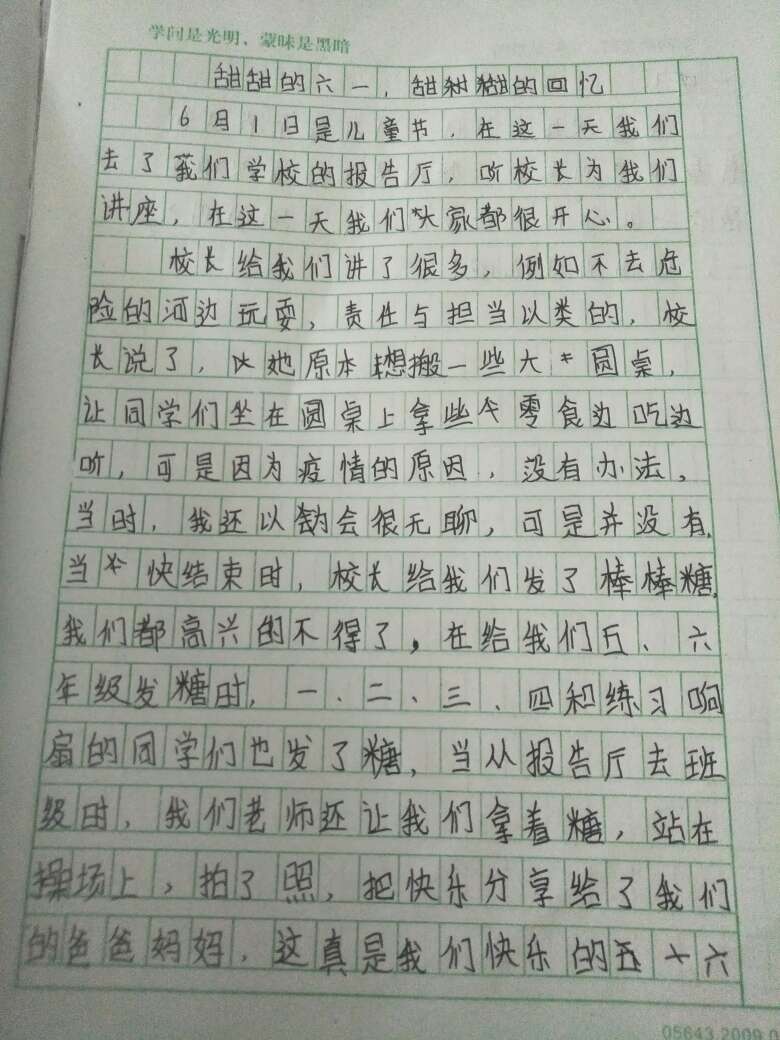 学问是光明，蒙昧是黑暗
甜甜的六一，甜甜的回忆
6月1日是儿童节，在这一天我们
去了我们学校的报告厅，听校长为我们
讲座，在这一天我们大家都很开心。
校长给我们讲了很多，例如不去危
险的河边玩耍，责任与担当以类的，校
长说了，她原本想搬一些大圆桌，
让同学们坐在圆桌上拿些零食边吃边
听，可是因为疫情的原因，没有办法，
当时，我还以为会很无聊，可是并没有，
当快结束时，校长给我们发了棒棒糖，
我们都高兴的不得了，在给我们五、六
年级发糖时，一、二、三、四和练习响
扇的同学们也发了糖，当从报告厅去班
级时，我们老师还让我们拿着糖，站在
操场上，拍了照，把快乐分享给了我们
的爸爸妈妈，这真是我们快乐的五十六
05643.2009.0